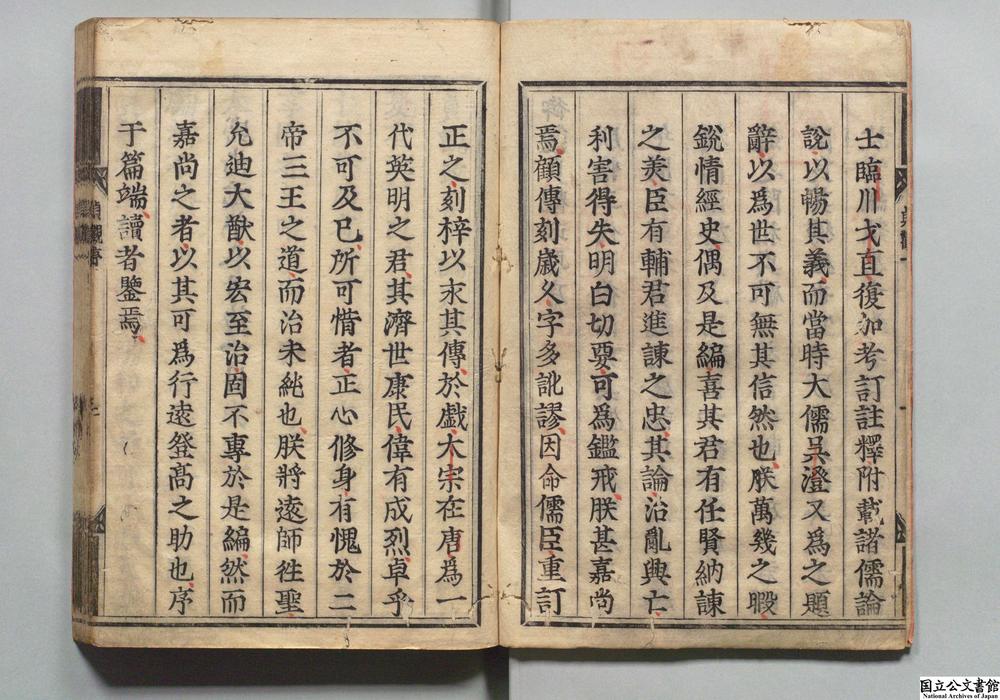 士臨川戈直復加考訂註釋附載諸儒論
說以暢其義而當時大儒吳澄又為之題
辭以爲世不可無其信然也朕萬幾之暇
銳情經史偶及是編喜其君有任賢納諫
之羙臣有輔君進諫之忠其論治亂興亡
利害得失明白切要可為鑑戒朕甚嘉尚
焉顧傳刻歲久字多訛謬因命儒臣重訂
正之刻梓以永其傳於戲太宗在唐為一
代英明之君其濟世康民偉有成烈卓乎
不可及已所可惜者正心修身有愧於二
帝三王之道而治未純也朕將遠師徃聖
允迪大猷以宏至治固不專於是編然而
嘉尚之者以其可爲行遠登髙之助也序
于篇端讀者鑒焉
貞觀序
国立公文書館
National Archives of Japan